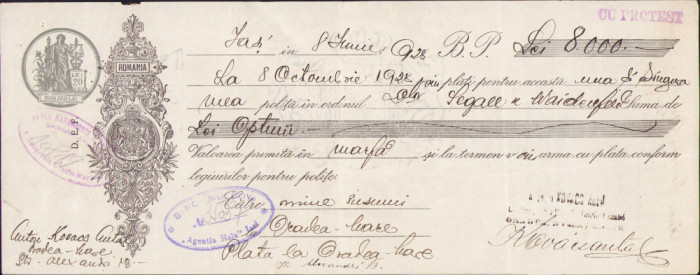 CU PROTEST
Iași în 8 Iunie 1928 B.P. Lei 8.000
La 8 Octombrie 1928 voiu plăti pentru această una și singura
mea poliță în ordinul Dlor Segall & Suma de
Lei Optmii
Valoarea primită în marfă și la termen voiu urma cu plata conform
legiuirilor pentru polițe
Către mine însumi
Oradea-Mare
Plata la Oradea-Mare
str. Alexandri 13
ROMANIA
LEI 20
D.E.P.
"Agenția Hala" Iași
Anton Kovacs Antal
Oradea-Mare
Str. Alexandri 13